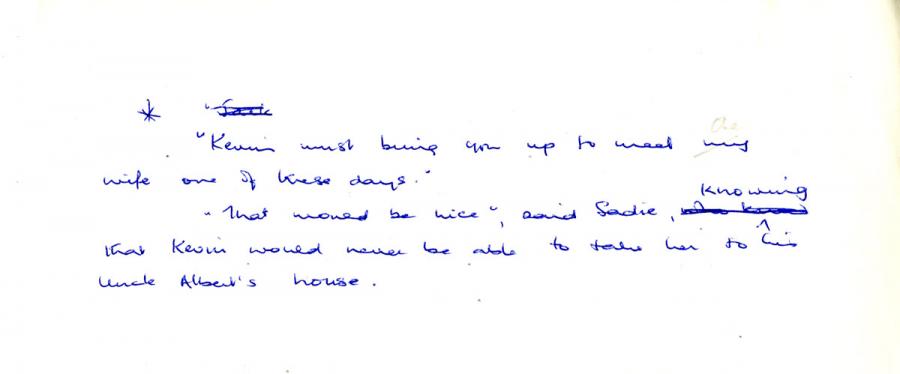 * "Sadie
"Kevin must bring you up to meet the my
wife one of these days."
"That would be nice", said Sadie, who knew knowing
that Kevin would never be able to take her to his
Uncle Albert's house.